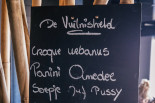 De Vuilnisheld
Croque Urbanus
Panini Amedee
Soepje Juf Pussy